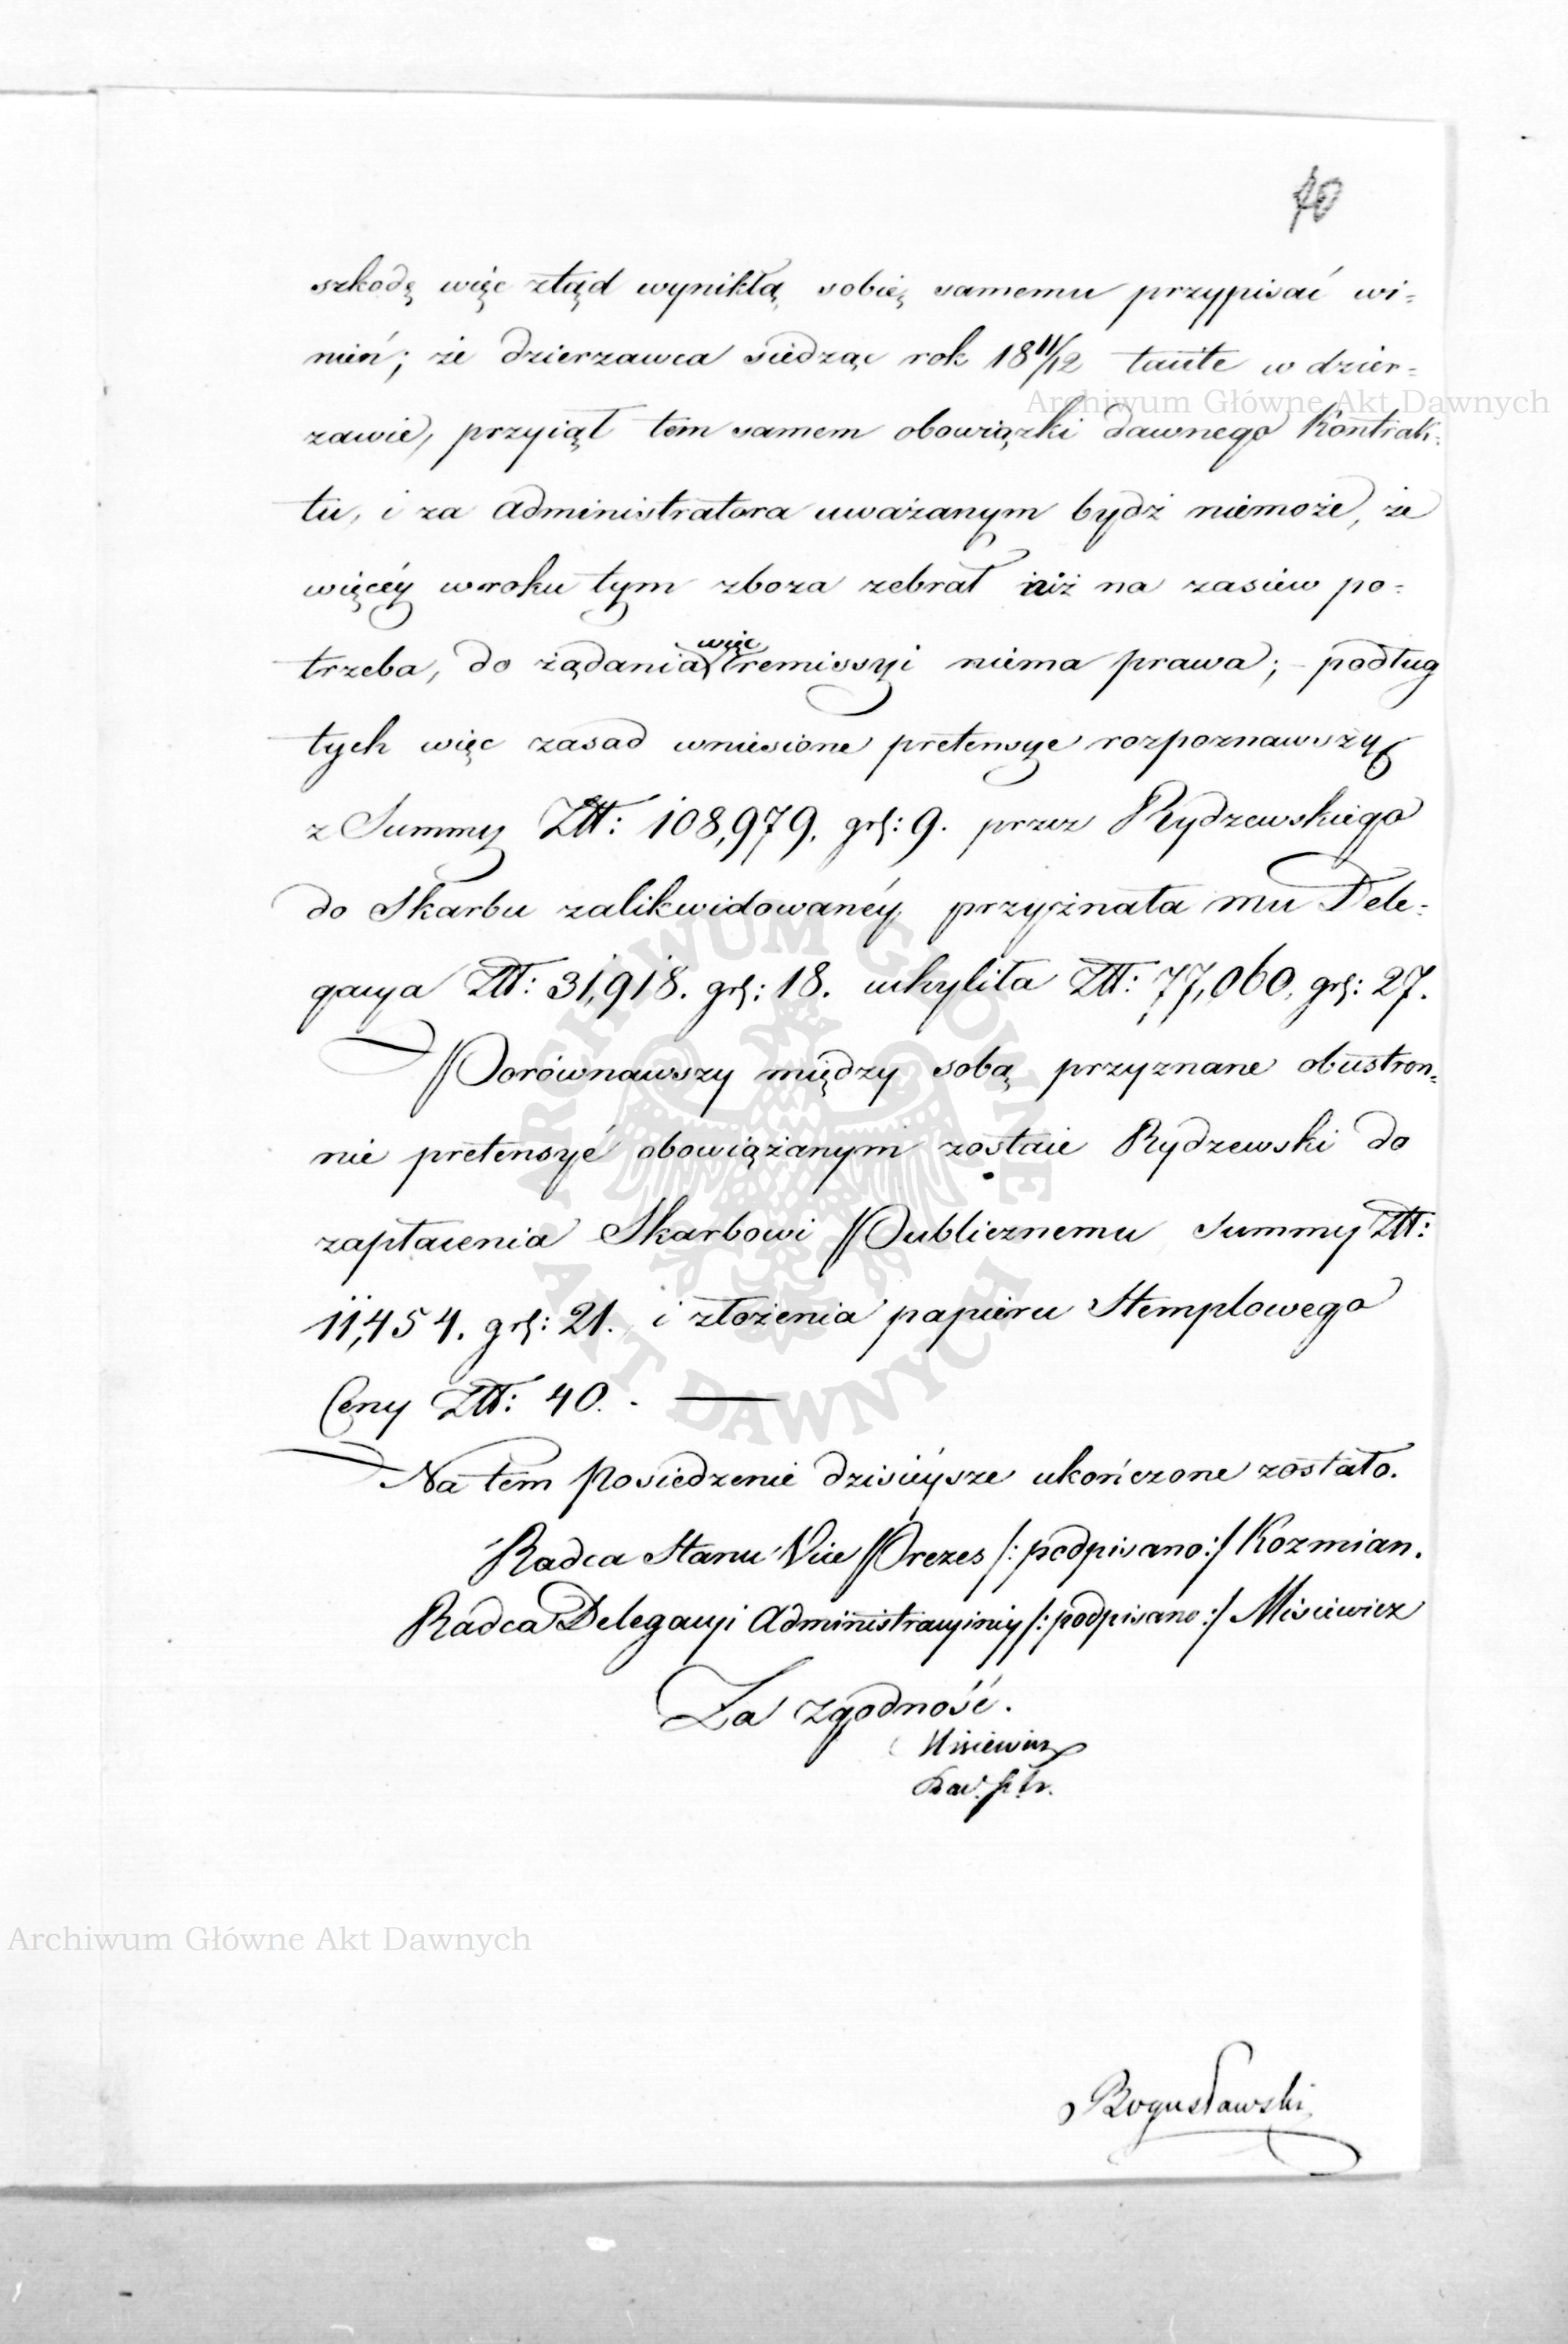 40
szkodę więc ztąd wynikłą sobię samemu przypisać wi=
nień; że dzierzawca siedząc rok 18 11/12 tacite w dzier=
zawie, przyiął tém samem obowiązki dawnego Kontrak=
tu, i za administratora uważanym bydź niemoże, że
więcéy w roku tym zboza zebrał niż na zasiew po=
trzeba, do żądania więc remissyi niema prawa; – podług
tych więc zasad wniesione pretensye rozpoznawszy
z Summy Złł: 108,979. gr: 9. przez Rydzewskiego
do Skarbu zalikwidowanéy, przyznała mu Dele=
gacya Złł: 31,918. gr: 18. uchyliła Złł: 77,060. gr: 27.
Porównawszy między sobą przyznane obustron=
nie pretensye obowiązanym zostaie Rydzewski do
zapłacenia Skarbowi Publicznemu Summy Złł:
11,454. gr: 21. i złożenia papieru Stemplowego
Ceny Złł: 40. –
Na tém Posiedzenie dzisiéysze ukończone zostało.
Radca Stanu Vice Prezes /: podpisano :/ Kozmian.
Radca Delegacyi Administracyinéy /: podpisano :/ Misiewicz
Za zgodność.
Misiewicz
Bogusławski
Archiwum Główne Akt Dawnych
ARCHIWUM GŁÓWNE AKT DAWNYCH
Archiwum Główne Akt Dawnych